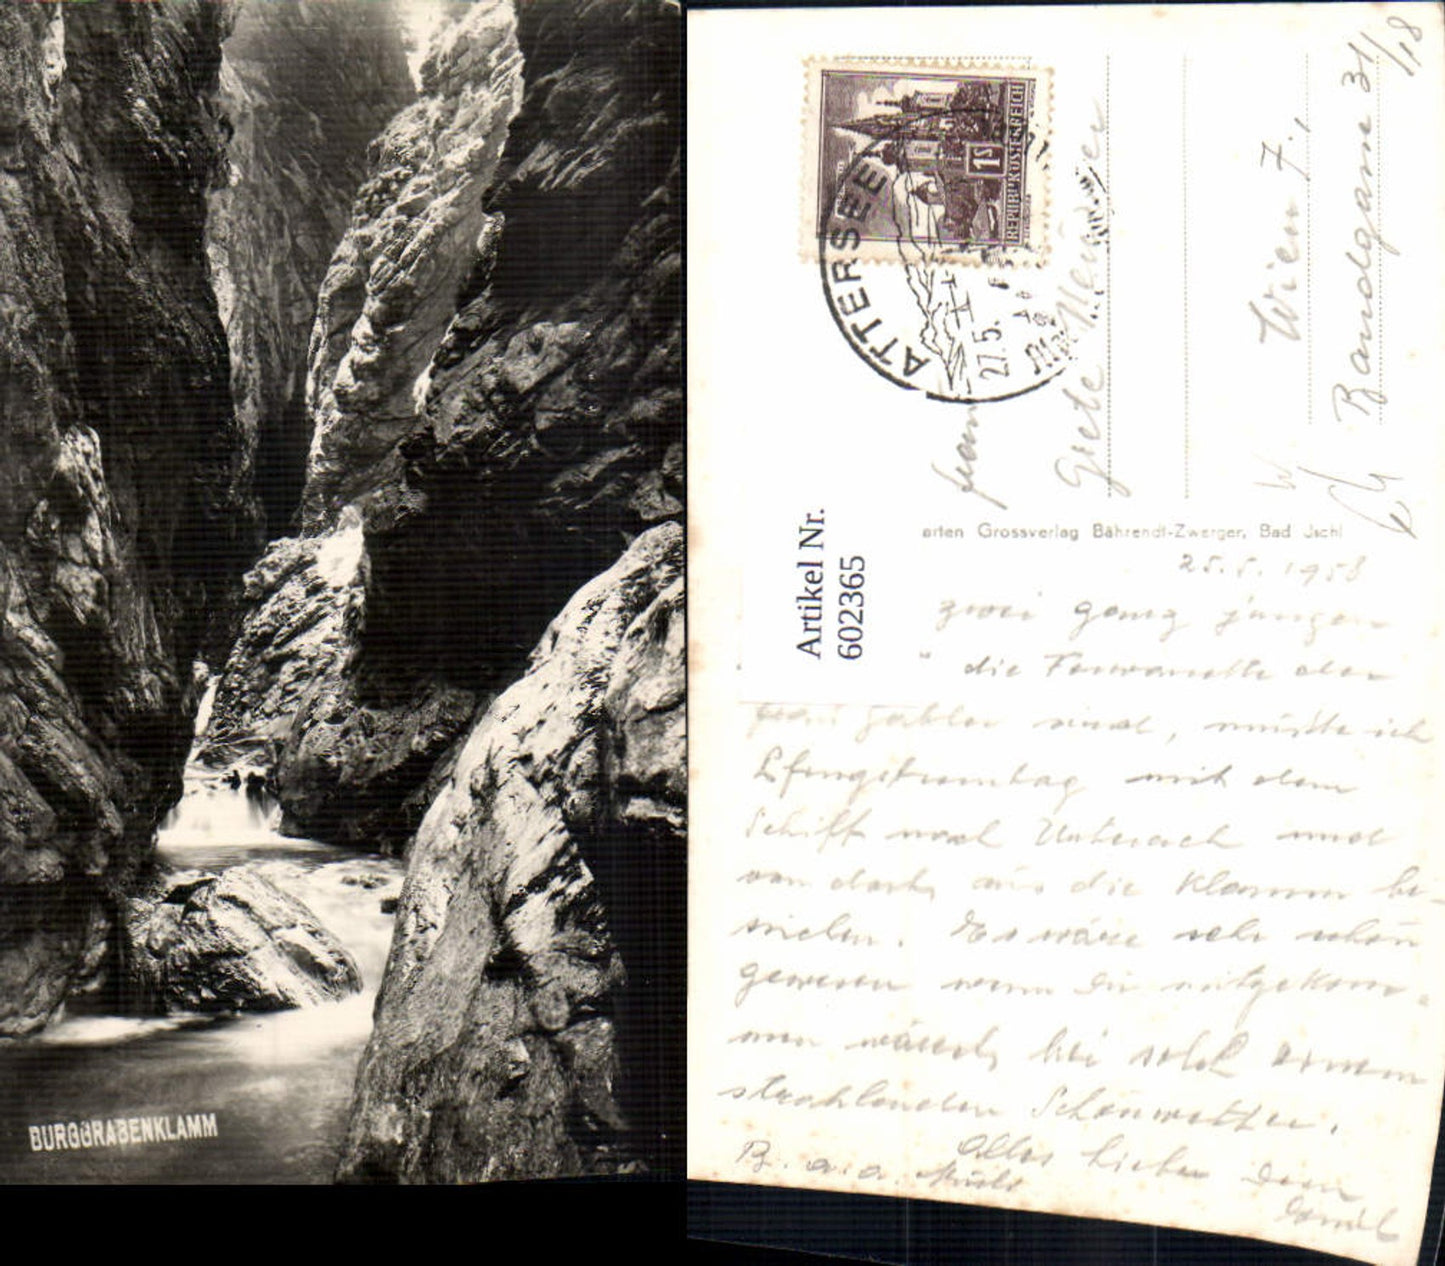 BURGGRABENKLAMM
REPUBLIK ÖSTERREICH
1S
ATTERSEE
27.5.
Artikel Nr.
602365
Grete
Wien 7.,
Bandgasse 31/18
arten Grossverlag Bährendt-Zwerger, Bad Jschl
25.5.1958
zwei ganz jungen
die
sind, mußte ich
Pfingstsonntag mit dem
Schiff nach Unterach und
von dort aus die Klamm be-
suchen. Es wäre sehr schön
gewesen wenn Du mitgekom-
men wärest, bei solch einem
strahlenden Schönwetter.
Alles Liebe Dein
B. a. a.